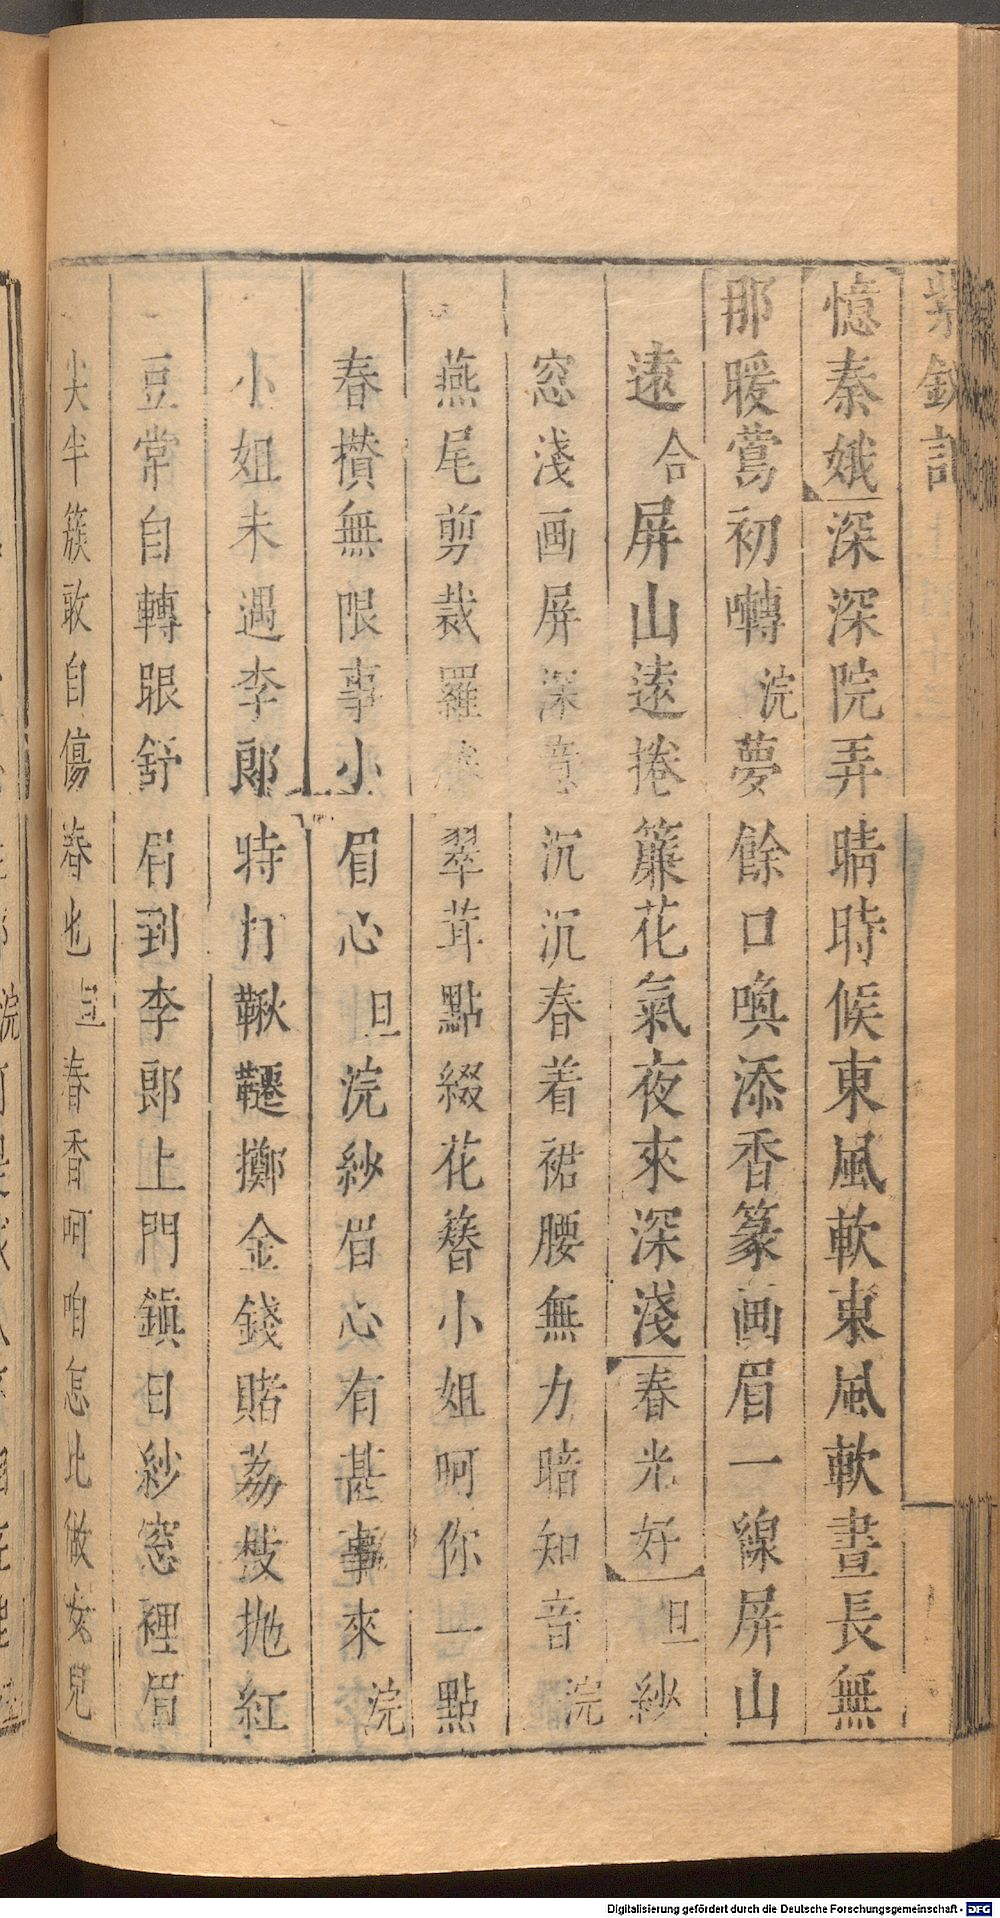 紫釵記
憶秦娥深深院弄晴時候東風軟東風軟晝長無
那暖鶯初囀浣夢餘口喚添香篆画眉一線屏山
遠合屏山遠捲簾花氣夜來深淺春光好旦紗
窓淺画屏深沉沉春着裙腰無力暗知音浣
燕尾剪裁羅翠茸點綴花簪小姐呵你一點
春攢無限事小眉心旦浣紗眉心有甚事來浣
小姐未遇李郎時打鞦韆擲金錢賭荔枝拋紅
豆常自轉眼舒眉到李郎上門鎮日紗窓裡眉
尖半簇敢自傷春也旦春香呵咱怎比做女兒
Digitalisierung gefördert durch die Deutsche Forschungsgemeinschaft - DFG